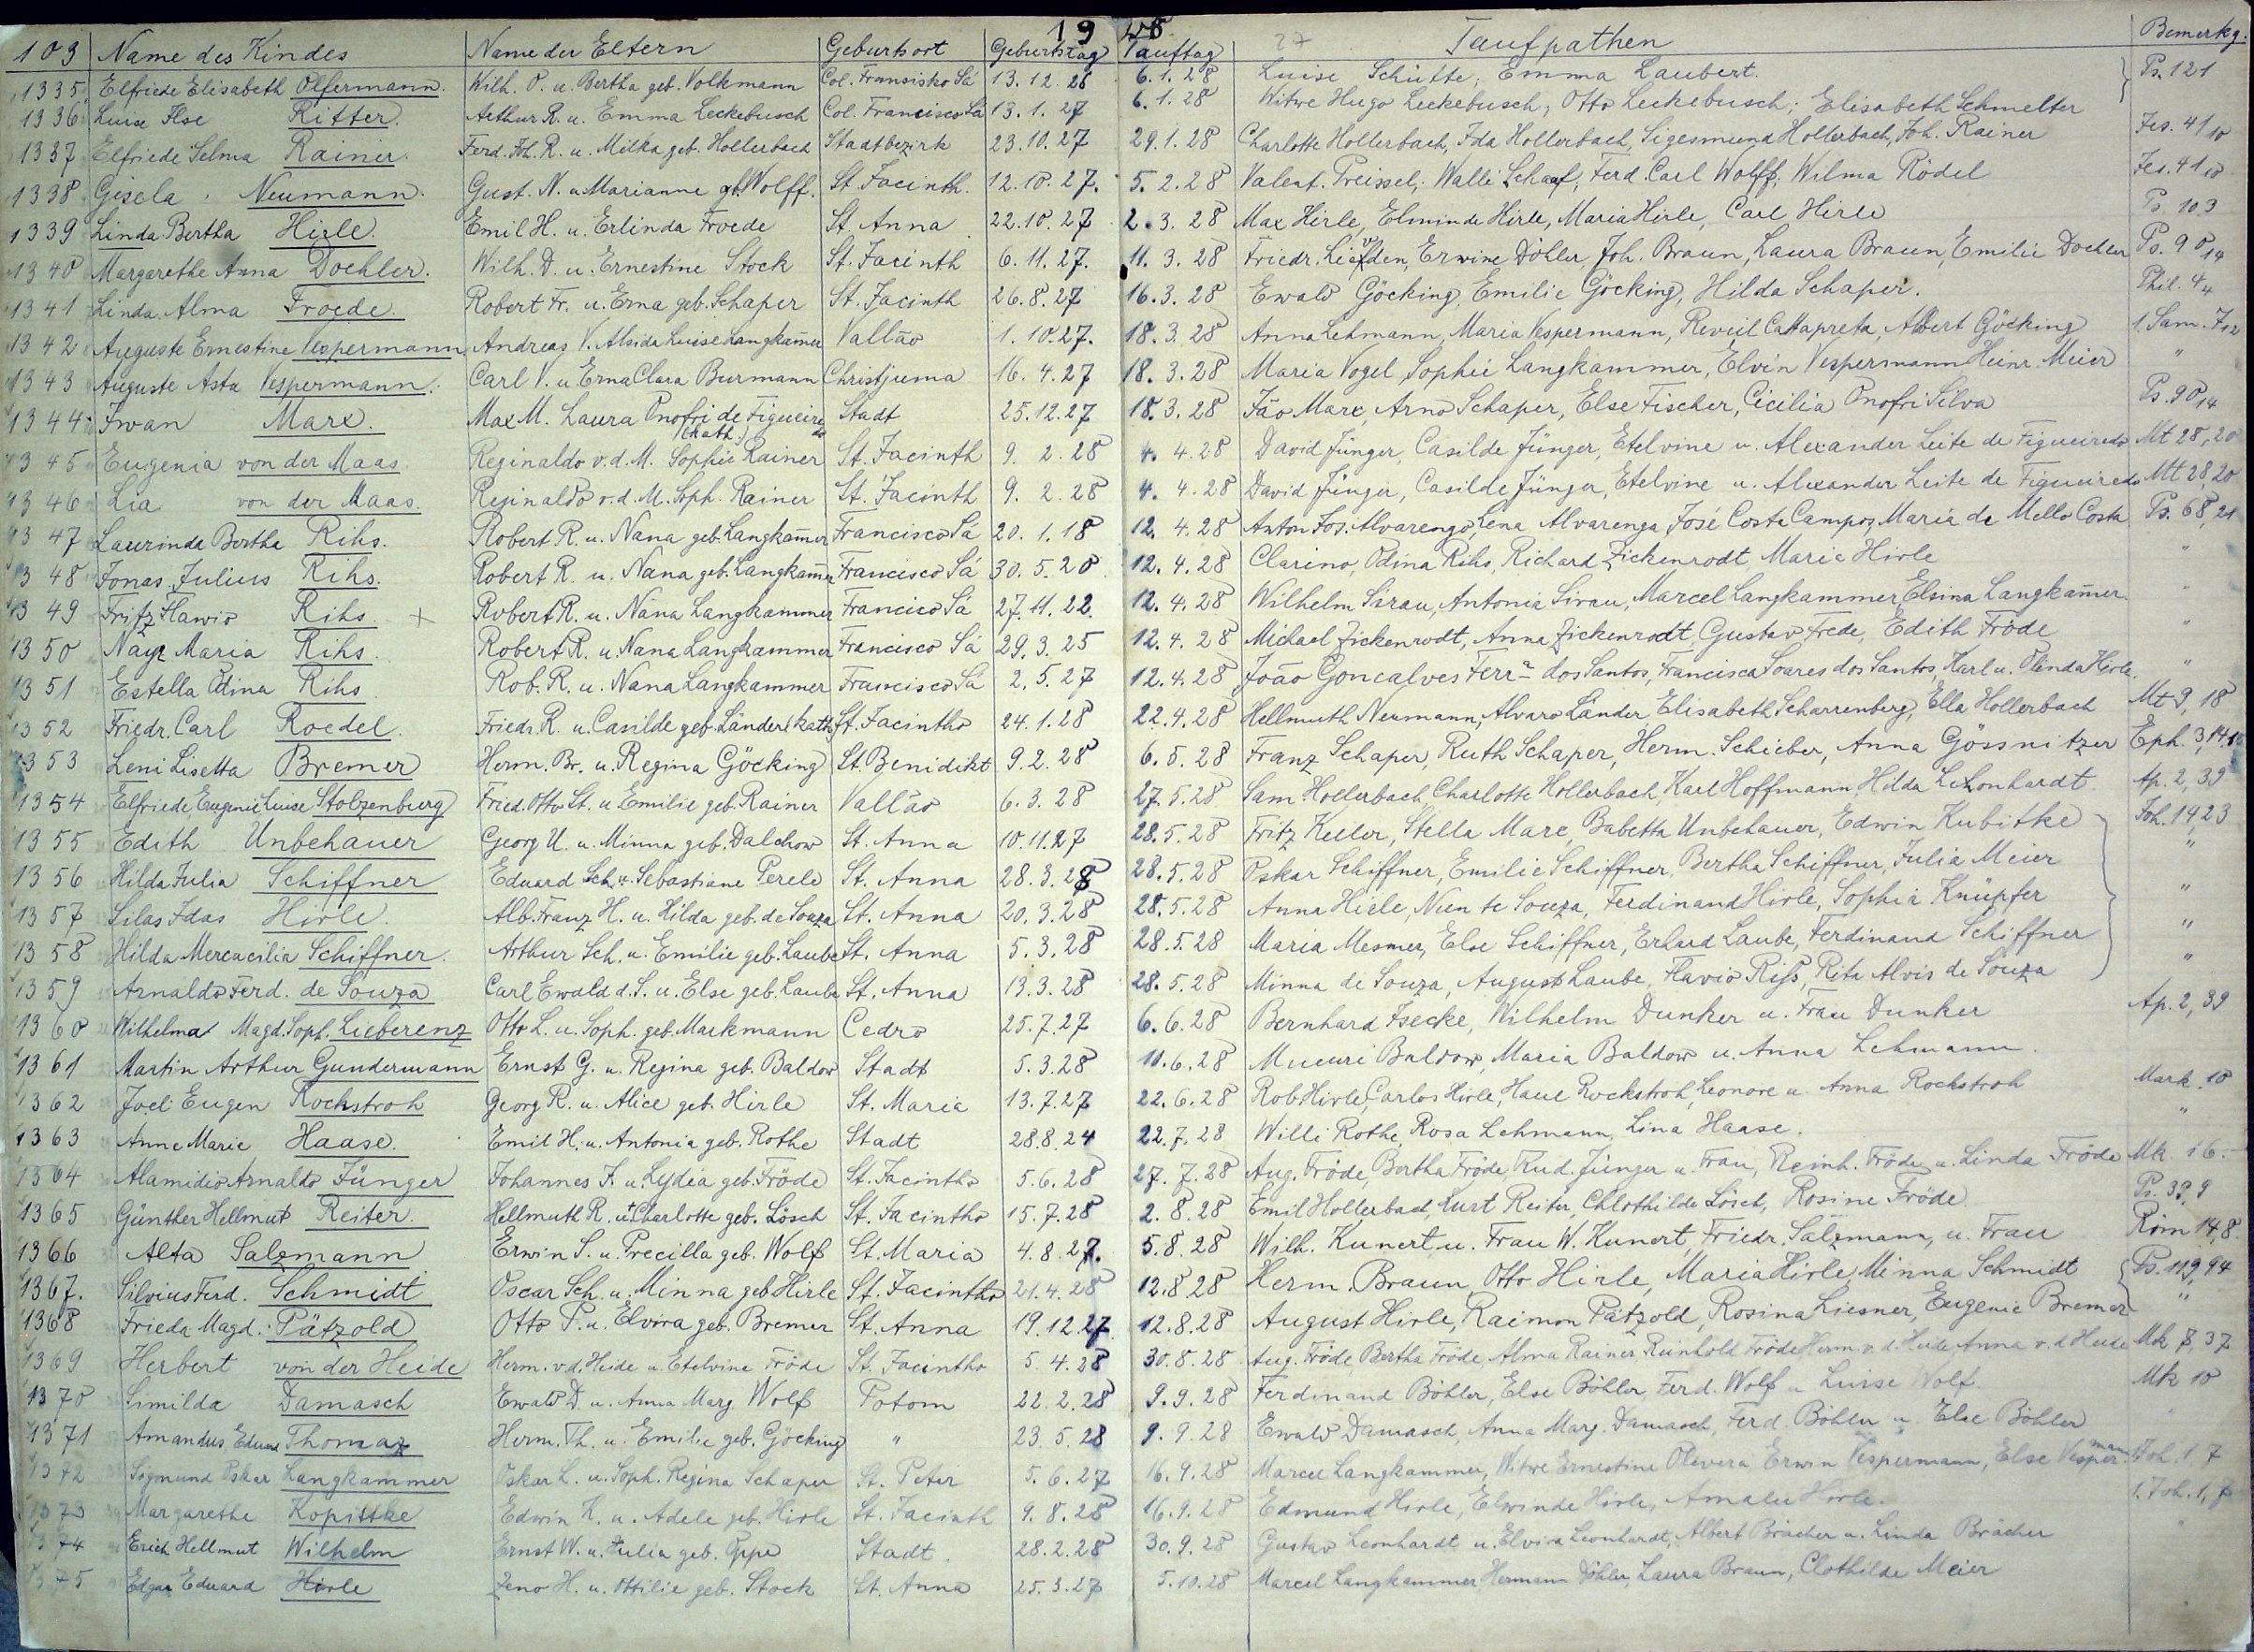 19 28
103 Name des Kindes Name der Eltern Geburtsort Geburtstag Tauftag 27 Taufpathen Bemerkg.
1335 Elfriede Elisabeth Olfermann. Wilh. O. u. Bertha geb. Volkmann Col. Fransisko Sá 13.12.26 6.1.28 Luise Schütte; Emma Laubert. Ps. 121
1336 Luise Ilse Ritter. Arthur R. u. Emma Leckebusch Col. Francisco Sá 13.1.27 6.1.28 Witwe Hugo Leckebusch; Otto Leckebusch; Elisabeth Schmelter
1337 Elfriede Selma Rainer. Ferd. Joh. R. u. Milka geb. Hollerbach Stadtbezirk 23.10.27 29.1.28 Charlotte Hollerbach, Ida Hollerbach, Sigesmund Hollerbach, Joh. Rainer Jes. 41 10
1338 Gisela Neumann. Gust. N. u. Marianne gb. Wolff. St. Jacinth. 12.10.27. 5.2.28 Valent. Preissel; Walli Schaaf; Ferd. Carl Wolff; Wilma Rödel Jes. 41 10
1339 Linda Bertha Hirle. Emil H. u. Erlinda Froede St. Anna 22.10.27 2.3.28 Max Hirle, Elminde Hirle, Maria Hirle, Carl Hirle Ps 103
1340 Margarethe Anna Doehler. Wilh. D. u. Ernestine Stock St. Jacinth 6.11.27. 11.3.28 Friedr. , Erwine Döhler, Joh. Braun, Laura Braun, Emilie Doehler Ps. 90 14
1341 Linda Alma Froede. Robert Fr. u. Erna geb. Schaper St. Jacinth 26.8.27 16.3.28 Ewald Göcking, Emilie Göcking, Hilda Schaper. Phil. 4 4
1342 Auguste Ernestine Vespermann Andreas V. Alsida Luise Langkam̄er Vallão 1.10.27. 18.3.28 Anna Lehmann, Maria Vespermann, Cattapreta, Albert Göcking 1. Sam. 7 12
1343 Auguste Asta Vespermann. Carl V. u Erna Clara Burmann Christjuma 16.4.27 18.3.28 Maria Vogel, Sophie Langkammer, Elvin Vespermann Heinr. Meier "
1344 Iwan Marx. Max M. Laura Onofri de Figueiredo (kath.) Stadt 25.12.27 18.3.28 Jão Marx, Arno Schaper, Else Fischer, Cicilia Onofri Silva Ps. 90 14
1345 Eugenia von der Maas Reginaldo v.d.M. Sophie Rainer St. Jacinth 9.2.28 4.4.28 David Jünger, Casilde Jünger, Etelvine u. Alexander Leite de Figueiredo Mt 28,20
1346 Lia von der Maas. Reginaldo v.d.M. Soph. Rainer St. Jacinth 9.2.28 4.4.28 David Jünger, Casilde Jünger, Etelvine u. Alexander Leite de Figueiredo Mt 28,20
1347 Laurinda Bertha Rihs. Robert R. u. Nana geb. Langkam̄er Francisco Sá 20.1.18 12.4.28 Anton Jos. Alvarengo, Lena Alvarenga, José Costa Campos, Maria de Mello Costa Ps. 68,21
1348 Jonas Julius Rihs. Robert R. u. Nana geb. Langkam̄er Francisco Sá 30.5.20 12.4.28 Clarino, Odina Rihs, Richard Zickenrodt Marie Hirle "
1349 Fritz Flawio Rihs + Robert R. u. Nana Langkammer Francico Sá 27.11.22. 12.4.28 Wilhelm Sirau, Antonia Sirau, Marcel Langkammer, Elsina Langkam̄er. "
1350 Nayr Maria Rihs. Robert R. u. Nana Langkammer Francisco Sá 29.3.25 12.4.28 Michael Zickenrodt, Anna Zickenrodt, Gustav Frede, Edith Fröde "
1351 Estella Odina Rihs Rob. R. u. Nana Langkammer Francisco Sá 2.5.27 12.4.28 João Goncalves Ferrª dos Santos, Francisca Soares dos Santos, Karl u. Olinda Hirle. "
1352 Friedr. Carl Roedel. Friedr. R. u. Casilde geb. Länder (kath) St. Jacintho 24.1.28 22.4.28 Hellmuth Neumann, Alvaro Länder, Elisabeth Scharrenberg, Ella Hollerbach Mt 9,18
1353 Leni Lisetta Bremer Herm. Br. u. Regina Göcking St. Benidikt 9.2.28 6.5.28 Franz Schaper, Ruth Schaper, Herm. Schieber, Anna Gössnitzer Eph. 3,14
1354 Elfriede, Eugenie Luise Stolzenburg Fried. Otto St. u. Emilie geb. Rainer Vallão 6.3.28 27.5.28 Sam. Hollerbach, Charlotte Hollerbach, Karl Hoffmann, Hilda Lehonhardt. Ap. 2,39
1355 Edith Unbehauer Georg U. u. Minna geb. Dalchow St. Anna 10.11.27 28.5.28 Fritz Keller, Stella Marx, Babetta Unbehauer, Edwin Kubitke Joh. 14,23
1356 Hilda Julia Schiffner Eduard Sch. u. Sebastiane Perele St. Anna 28.3.28 28.5.28 Oskar Schiffner, Emilie Schiffner, Bertha Schiffner, Julia Meier "
1357 Silas Idas Hirle. Alb. Franz H. u. Hilda geb. de Souza St. Anna 20.3.28 28.5.28 Anna Hirle, Souza, Ferdinand Hirle, Sophia Knüpfer "
1358 Hilda Mercucilia Schiffner. Arthur Sch. u. Emilie geb. Laube St. Anna 5.3.28 28.5.28 Maria Mesmer, Else Schiffner, Erhard Laube, Ferdinand Schiffner "
1359 Arnaldo Ferd. de Souza Carl Ewald d. S. u. Else geb. Laube St. Anna 13.3.28 28.5.28 Minna de Souza, August Laube, Flavio Riß, Rita Alvis de Souza "
1360 Wilhelma Magd. Soph. Lieberenz Otto L. u. Soph. geb. Markmann Cedro 25.7.27 6.6.28 Bernhard Isecke, Wilhelm Dunker u. Frau Dunker Ap. 2,39
1361 Martin Arthur Gundermann Ernst G. u. Regina geb. Baldow Stadt 5.3.28 10.6.28 Mucuri Baldow, Maria Baldow u. Anna Lehmann.
1362 Joel Eugen Rochstroh Georg R. u. Alice geb. Hirle St. Maria 13.7.27 22.6.28 Rob Hirle, Carlos Hirle, Rockstroh, Leonore u. Anna Rochstroh Mark. 10
1363 Anne Marie Haase. Emil H. u. Antonia geb. Rothe Stadt 28.8.24 22.7.28 Willi Rothe, Rosa Lehmann, Lina Haase. "
1364 Alamidio Arnaldo Jünger Johannes J. u. Lydia geb. Fröde St. Jacintho 5.6.28 27.7.28 Aug. Fröde, Bertha Fröde, Rud. Jünger u. Frau, Reinh. Fröde u. Linda Fröde Mk 16.
1365 Günther Hellmut Reiter. Hellmuth R. u. Charlotte geb. Lösch St. Jacintho 15.7.28 2.8.28 Emil Hollerbach, Kurt Reiter, Chlothilde Lösch, Rosine Fröde Ps. 39,9
1366 Alta Salzmann Erwin S. u. Precilla geb. Wolf St. Maria 4.8.27. 5.8.28 Wilh. Kunert u. Frau W. Kunert, Friedr. Salzmann, u. Frau Röm 14,8.
1367. Silvius Ferd. Schmidt Oscar Sch. u. Minna geb Hirle St. Jacintho 21.4.28 12.8.28 Herm. Braun, Otto Hirle, Maria Hirle, Minna Schmidt Ps. 119,94
1368 Frieda Magd. Pätzold Otto P. u. Elvira geb. Bremer St. Anna 19.12.27 12.8.28 August Hirle, Raimon Pätzold, Rosina Liesner, Eugenie Bremer "
1369 Herbert von der Heide Herm. v.d. Heide u. Etelvine Fröde St. Jacintho 5.4.28 30.8.28 Aug. Fröde, Bertha Fröde, Alma Rainer Reinhold Fröde Herm. v. d. Heide Anna v. d Heide Mk 7,37
1370 Similda Damasch Ewald D. u. Anna Marg Wolf Potom 22.2.28 9.9.28 Ferdinand Böhler, Else Böhler, Ferd. Wolf u Luise Wolf Mk 10
1371 Amandus Eduard Thomaz Herm. Th. u. Emilie geb. Göcking " 23.5.28 9.9.28 Ewald Damasch, Anna Marg. Damasch, Ferd. Böhler u. Else Böhler
1372 Sigmund Oskar Langkammer Oskar L. u. Soph. Regina Schaper St. Peter 5.6.27 16.9.28 Marcel Langkammer, Witwe Ernestine Olivera Erwin Vespermann, Else Vespermann 1. Joh. 1,7
1373 Margarethe Kopittke Edwin K. u. Adele geb. Hirle St. Jacinth 9.8.28 16.9.28 Edmund Hirle, Elwinde Hirle, Amalie Hirle. 1. Joh. 1,7
1374 Erich Hellmut Wilhelm Ernst W. u. Julia geb. Oppe Stadt. 28.2.28 30.9.28 Gustav Leonhardt u. Elvira Leonhardt, Albert Bracher u. Linda Bracher
1375 Edgar Eduard Hirle Zeno H. u. Ottilie geb. Stock St. Anna 25.3.27 5.10.28 Marcel Langkammer, Hermann Döhler, Laura Braun, Clothilde Meier